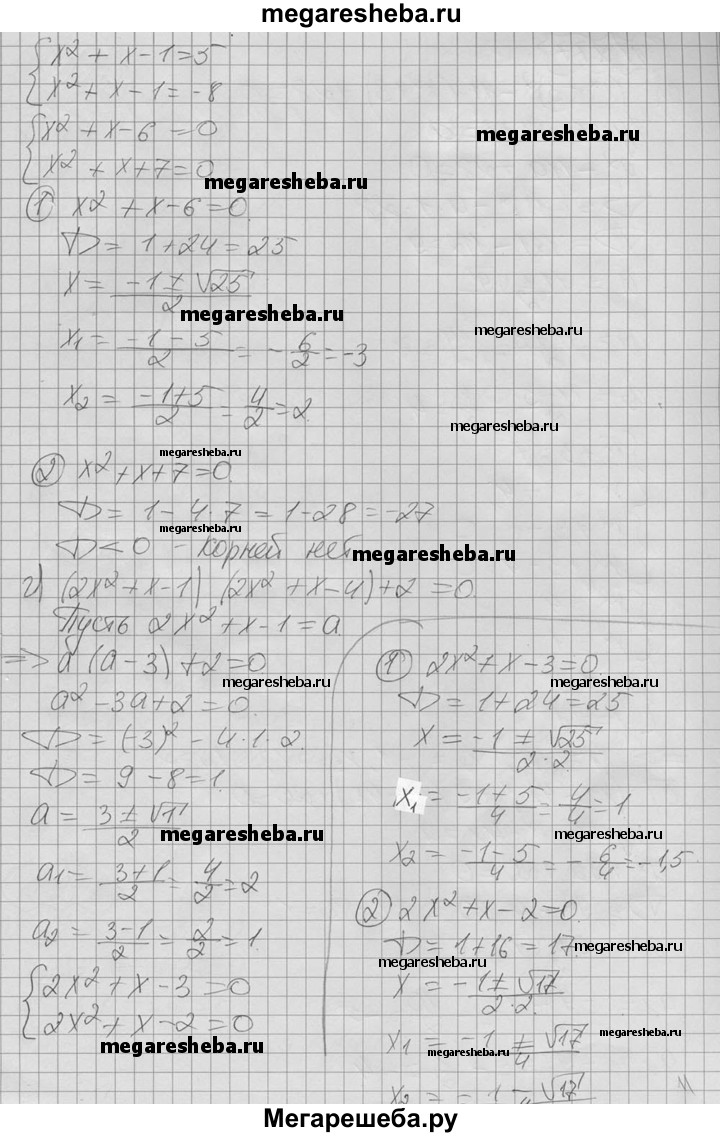 megaresheba.ru
x² + x - 1 = 5
x² + x - 1 = -8
x² + x - 6 = 0
megaresheba.ru
x² + x + 7 = 0
megaresheba.ru
① x² + x - 6 = 0.
D = 1 + 24 = 25
x = (-1 ± √25)/2
megaresheba.ru
megaresheba.ru
x₁ = (-1 - 5)/2 = -6/2 = -3
x₂ = (-1 + 5)/2 = 4/2 = 2.
megaresheba.ru
megaresheba.ru
② x² + x + 7 = 0.
D = 1 - 4 · 7 = 1 - 28 = -27
megaresheba.ru
D < 0 - корней нет
megaresheba.ru
г) (2x² + x - 1) (2x² + x - 4) + 2 = 0.
Пусть 2x² + x - 1 = a
=> a (a - 3) + 2 = 0
megaresheba.ru
a² - 3a + 2 = 0.
D = (-3)² - 4 · 1 · 2
D = 9 - 8 = 1.
a = (3 ± √1)/2
megaresheba.ru
a₁ = (3 + 1)/2 = 4/2 = 2
a₂ = (3 - 1)/2 = 2/2 = 1.
2x² + x - 3 = 0
2x² + x - 2 = 0
megaresheba.ru
① 2x² + x - 3 = 0
megaresheba.ru
D = 1 + 24 = 25
x = (-1 ± √25)/(2 · 2)
x₁ = (-1 + 5)/4 = 4/4 = 1
megaresheba.ru
x₂ = (-1 - 5)/4 = -6/4 = -1,5.
② 2x² + x - 2 = 0.
D = 1 + 16 = 17.
megaresheba.ru
megaresheba.ru
x = (-1 ± √17)/(2 · 2)
x₁ = (-1 + √17)/4
megaresheba.ru
megaresheba.ru
x₂ = -1 - √17
Мегарешеба.ру